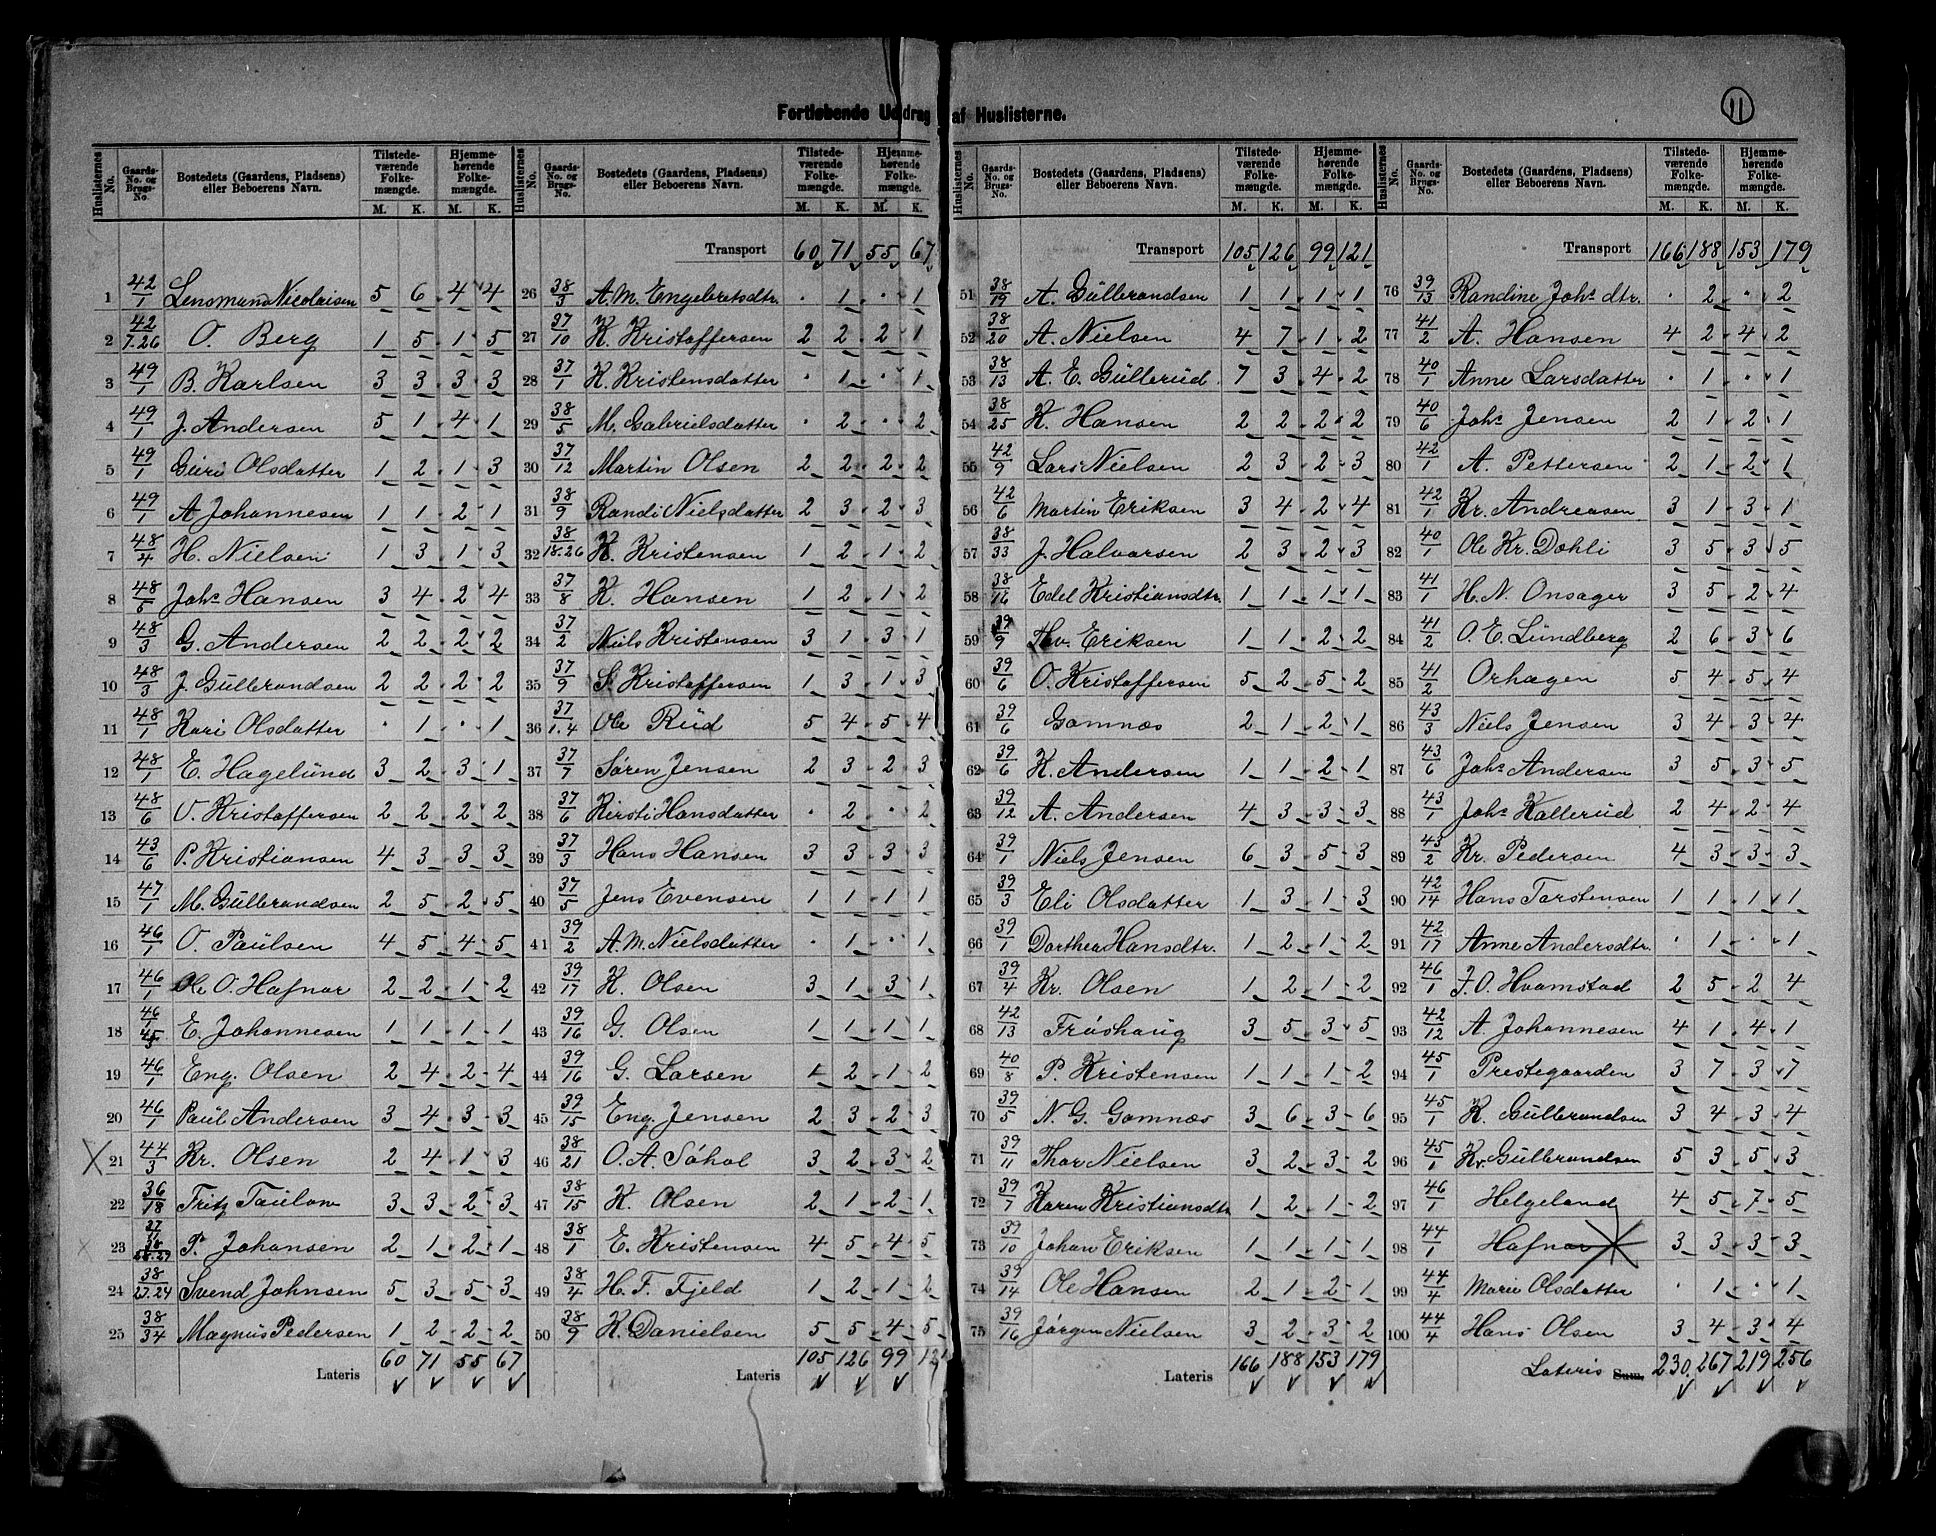 11
Fortløbende Uddrag af Huslisterne.
Huslisternes No. | Gaards-No. og Brugs-No. | Bostedets (Gaardens, Pladsens) eller Beboerens Navn. | Tilstedeværende Folkemængde. M. K. | Hjemmehørende Folkemængde. M. K.
1 42/1 Lensmand Nicolaisen 5 6 4 4
2 42/7.26 O. Berg 1 5 1 5
3 49/1 B. Karlsen 3 3 3 3
4 49/1 J. Andersen 5 1 4 1
5 49/1 Guri Olsdatter 1 2 1 3
6 49/1 A Johannesen 1 1 2 1
7 48/4 H. Nielsen 1 3 1 3
8 48/5 Johs Hansen 3 4 2 4
9 48/3 G. Andersen 2 2 2 2
10 48/3 J. Gulbrandsen 2 2 2 2
11 48/1 Kari Olsdatter . 1 . 1
12 48/1 E. Hagelund 3 2 3 1
13 48/6 O. Kristoffersen 2 2 2 2
14 43/6 P. Kristiansen 4 3 3 3
15 47/1 M. Gulbrandsen 2 5 2 5
16 46/1 O. Paulsen 4 5 4 5
17 46/1 Ole O. Hafnor 2 2 1 2
18 46/1 45/3 E. Johannesen 1 1 1 1
19 46/1 Eng. Olsen 2 4 2 4
20 46/1 Paul Andersen 3 4 3 3
21 44/3 Kr. Olsen 2 4 1 3
22 36/18 Fritz Taulow 3 3 2 3
23 P. Johansen 2 1 2 1
24 38/27.24 Svend Johnsen 5 3 5 3
25 38/34 Magnus Pedersen 1 2 2 2
Lateris 60 71 55 67
Transport 60 71 55 67
26 38/3 A. M. Engebretsdtr. . 1 . 1
27 37/10 K. Kristoffersen 2 2 2 1
28 37/1 K. Kristensdatter . 1 . 1
29 38/5 M. Gabrielsdatter . 2 . 2
30 37/12 Martin Olsen 2 2 2 2
31 38/9 Randi Nielsdatter 2 3 2 3
32 38/18.26 K. Kristensen 1 2 1 2
33 37/8 K. Hansen 1 2 1 2
34 37/2 Niels Kristensen 3 1 3 1
35 37/9 S. Kristoffersen 1 3 1 3
36 37/1.4 Ole Rud 5 4 5 4
37 37/7 Søren Jensen 2 3 2 3
38 37/6 Kirsti Hansdatter . 2 . 2
39 37/3 Hans Hansen 3 3 3 3
40 37/5 Jens Evensen 1 1 1 1
41 39/2 A. M. Nielsdatter . 1 . 1
42 39/17 K. Olsen 3 1 3 1
43 39/16 G. Olsen 1 1 1 1
44 39/16 G. Larsen 1 2 1 2
45 39/15 Eng. Jensen 2 3 2 3
46 38/21 O. A. Søhol 3 2 3 2
47 38/15 K. Olsen 2 1 2 1
48 38/1 E. Kristensen 4 5 4 5
49 38/4 H. F. Fjeld 1 2 1 2
50 38/9 K. Danielsen 5 5 4 5
Lateris 105 126 99 121
Transport 105 126 99 121
51 38/19 A. Gulbrandsen 1 1 1 1
52 38/20 A. Nielsen 4 7 1 2
53 38/13 A. E. Gullerud 7 3 4 2
54 38/25 K. Hansen 2 2 2 2
55 42/9 Lars Nielsen 2 3 2 3
56 42/6 Martin Eriksen 3 4 2 4
57 38/33 J. Halvorsen 2 3 2 3
58 38/16 Edel Kristiansdtr. 1 1 1 1
59 39/9 Eriksen 1 1 2 2
60 39/6 O. Kristoffersen 5 2 5 2
61 39/6 Gomnæs 2 1 2 1
62 39/6 K. Andersen 1 1 2 1
63 39/12 A. Andersen 4 3 3 3
64 39/1 Niels Jensen 6 3 5 3
65 39/3 Eli Olsdatter 1 3 1 3
66 39/1 Dorthea Hansdtr. 1 2 1 2
67 39/4 Kr. Olsen 1 2 1 2
68 42/13 Frøshaug 3 5 3 5
69 40/8 P. Kristensen 1 1 1 2
70 39/5 N. G. Gomnæs 3 6 3 6
71 39/11 Thor Nielsen 3 2 3 2
72 39/7 Karen Kristiansdtr 1 2 1 2
73 39/10 Johan Eriksen 1 1 1 1
74 39/14 Ole Hansen 2 1 2 1
75 39/16 Jørgen Nielsen 3 2 3 2
Lateris 166 188 153 179
Transport 166 188 153 179
76 39/13 Randine Johs dtr. . 2 . 2
77 41/2 A. Hansen 4 2 4 2
78 40/1 Anne Larsdatter . 1 . 1
79 40/6 Johs Jensen 2 1 2 1
80 42/1 A. Pettersen 2 1 2 1
81 42/1 Kr. Andreasen 3 1 3 1
82 40/1 Ole Kr. Dohli 3 5 3 5
83 41/1 H. N. Onsager 3 5 2 4
84 41/2 O. E. Lundberg 2 6 3 6
85 41/2 Orhagen 5 4 5 4
86 43/3 Niels Jensen 3 4 3 4
87 43/6 Johs Andersen 3 5 3 5
88 43/1 Johs Kallerud 2 4 2 4
89 43/2 Kr. Pedersen 4 3 3 3
90 42/14 Hans Torstensen 1 1 1 1
91 42/17 Anne Andersdtr. . 1 . 1
92 46/1 J. O. Hvamstad 2 5 2 4
93 42/12 A. Johannesen 4 1 4 1
94 45/1 Prestegaarden 3 7 3 7
95 45/1 K. Gulbrandsen 3 4 3 4
96 45/1 Kr. Gulbrandsen 5 3 5 3
97 46/1 Helgeland 4 5 7 5
98 44/1 Hafnor 3 3 3 3
99 44/4 Marie Olsdatter . 1 . 1
100 44/4 Hans Olsen 3 4 3 4
Lateris Sum. 230 267 219 256